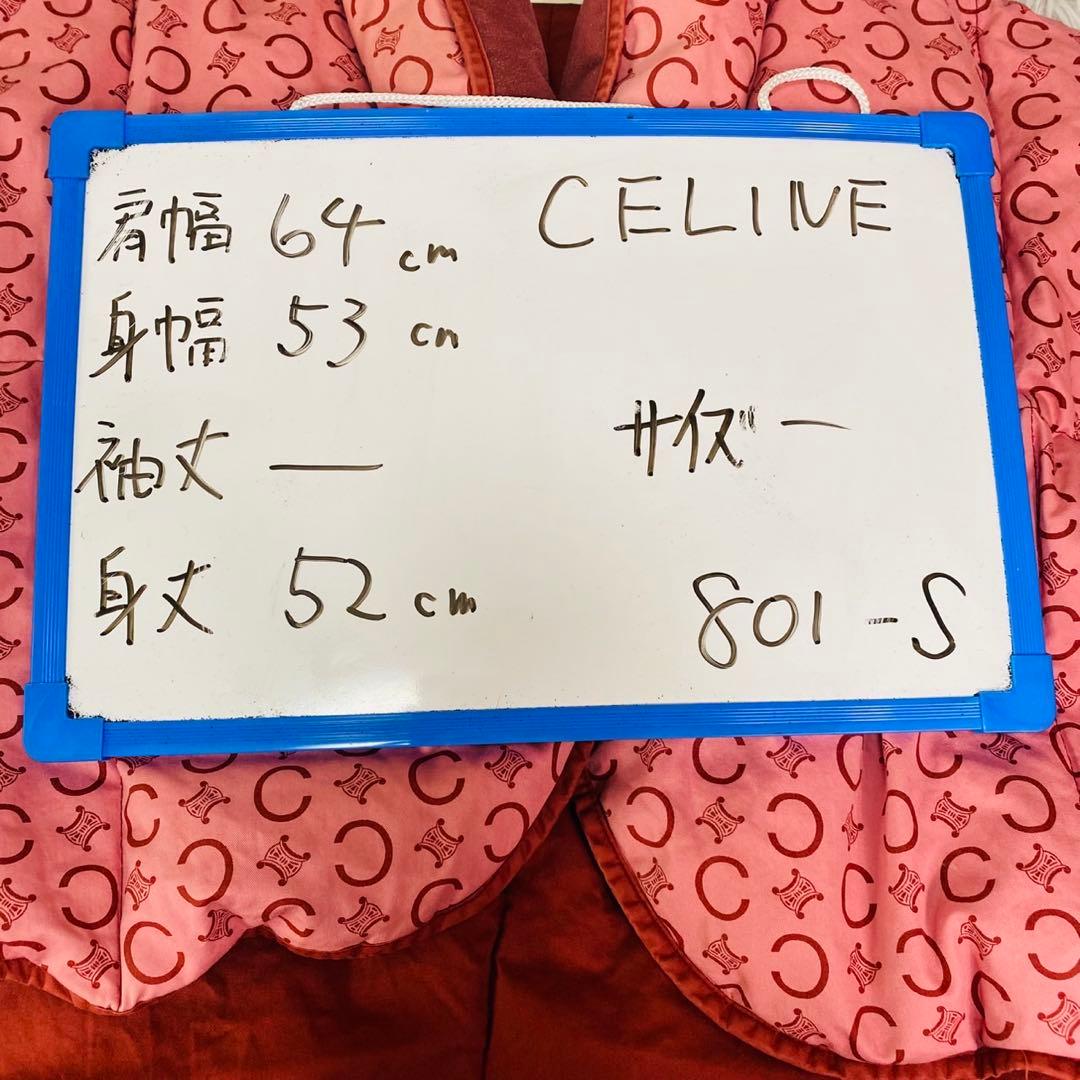 肩幅 64 cm
身幅 53 cm
袖丈 —
身丈 52 cm
CELINE
サイズ ー
801 - S